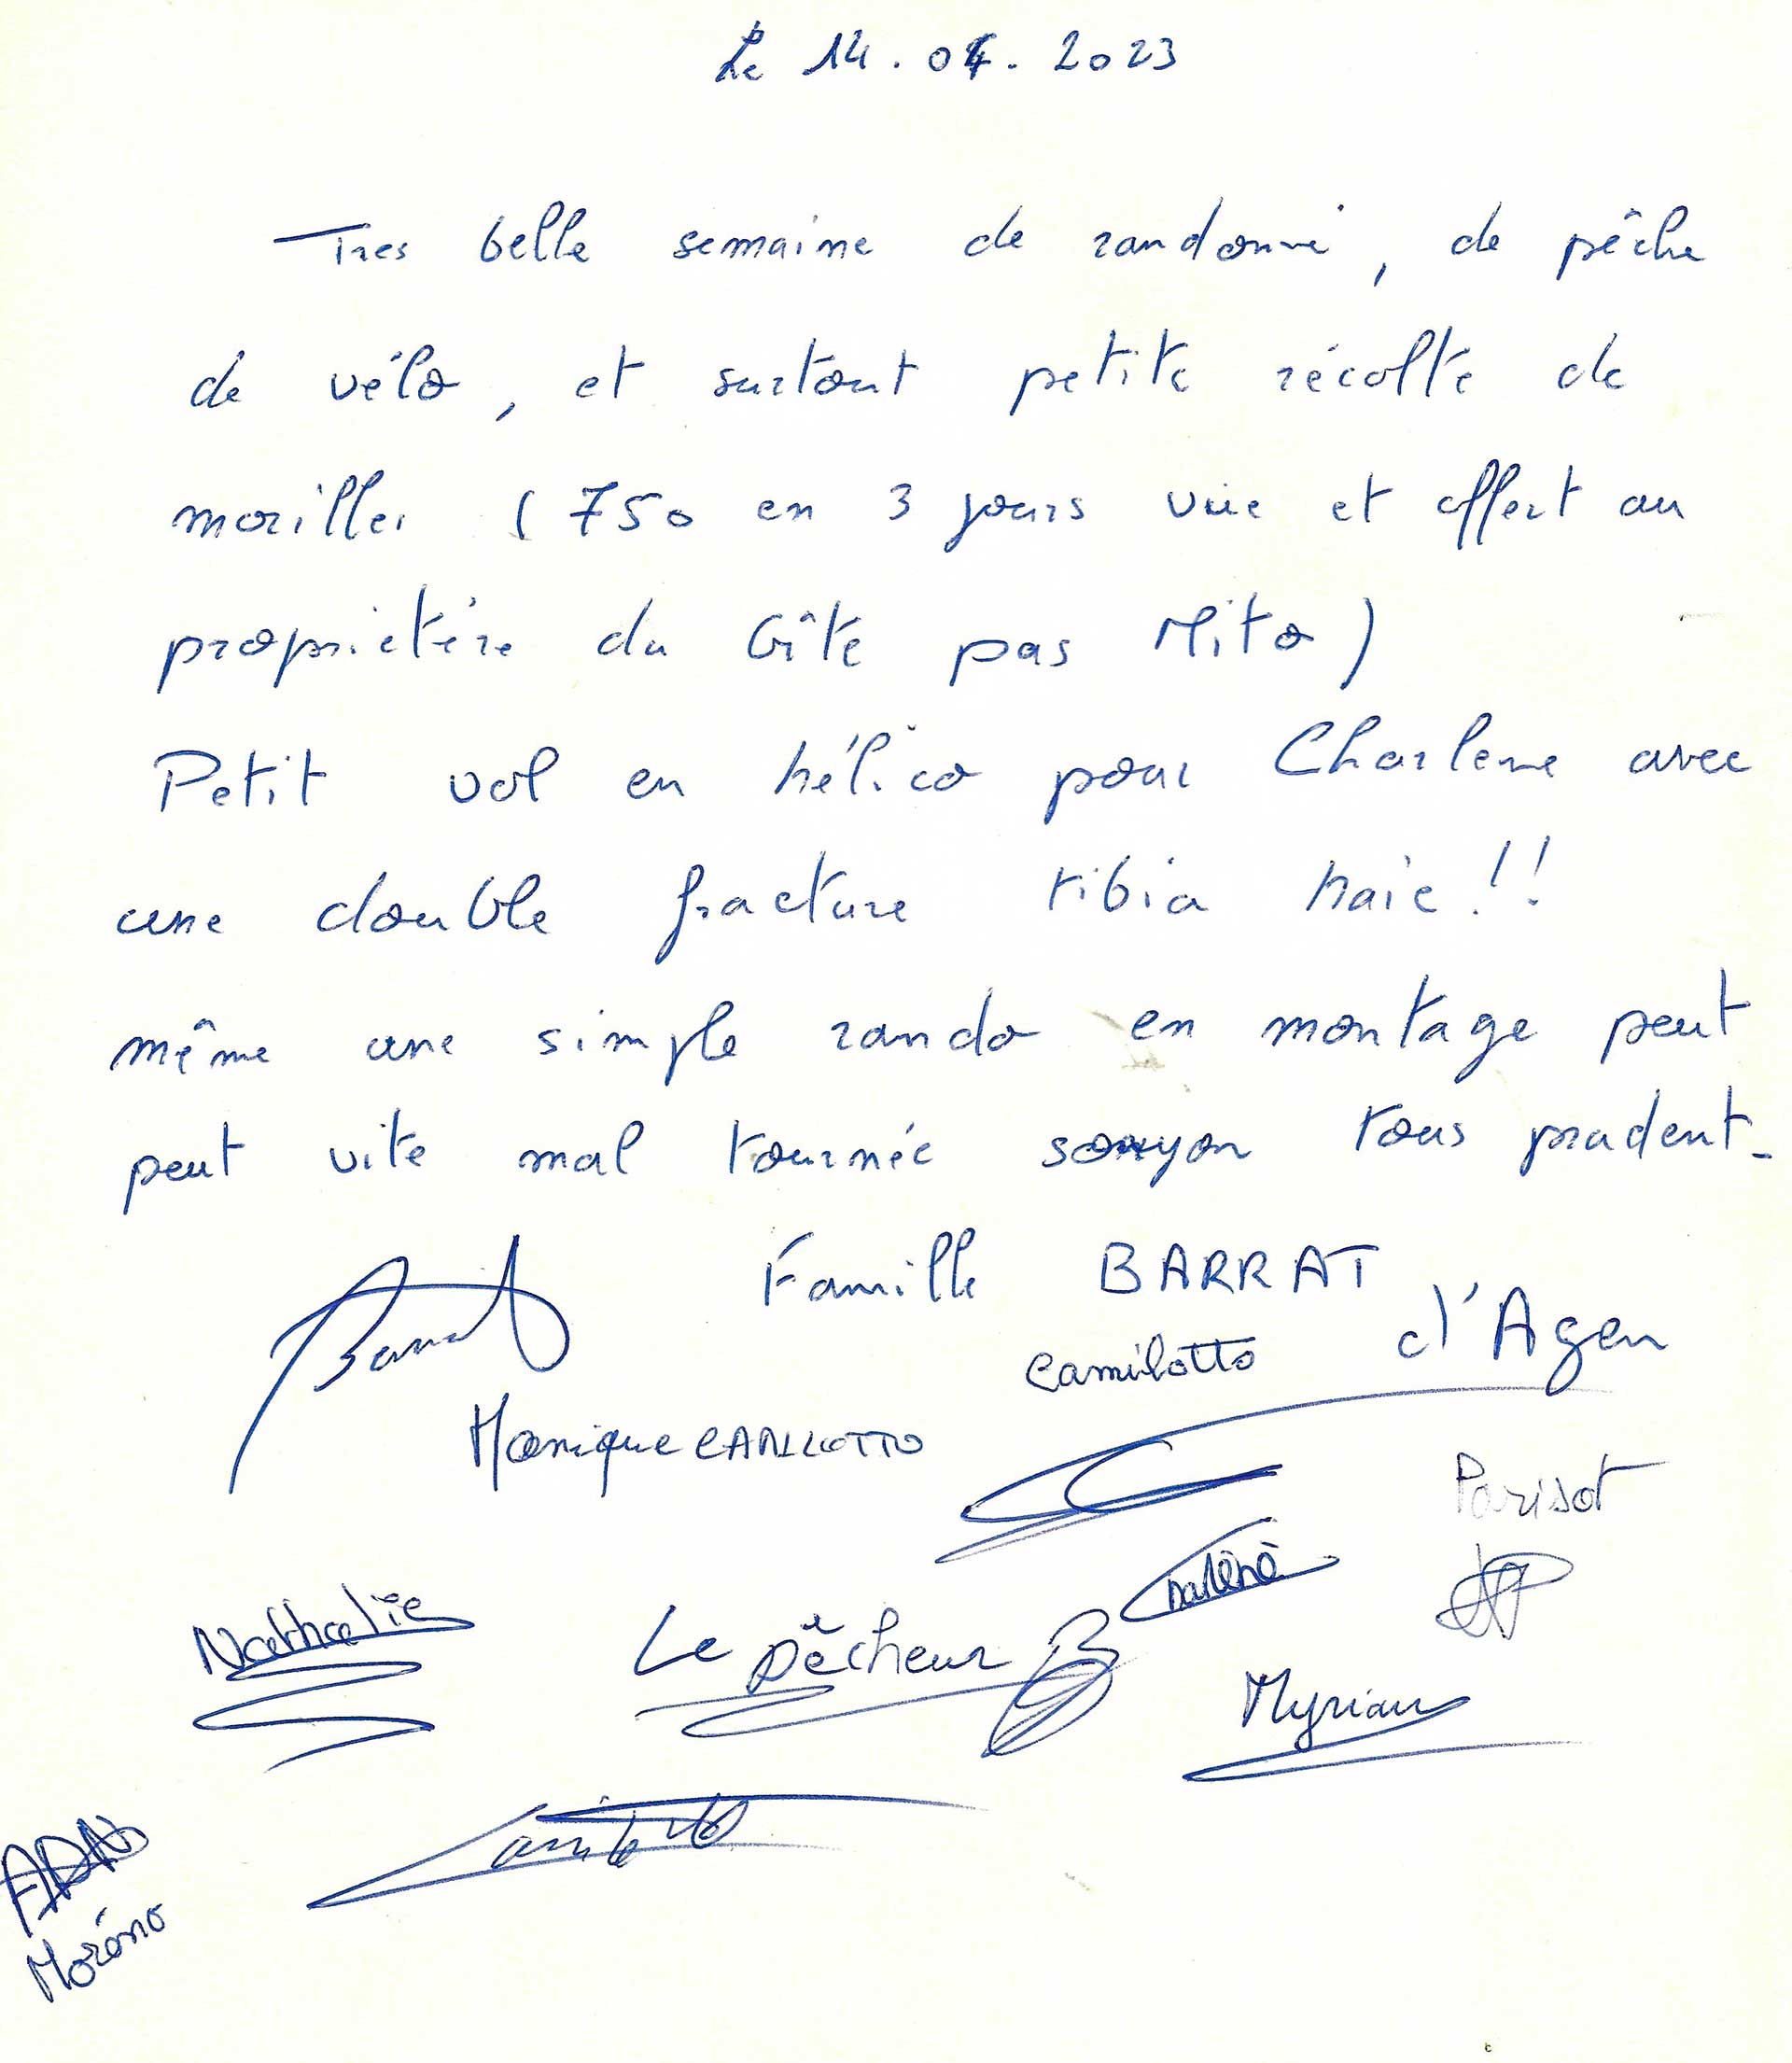 Le 14.04.2023
Tres belle semaine de randonné, de pêche
de vélo, et surtout petite récolte de
morilles (750 en 3 jours vue et offert au
propriétére du Gîte pas Mito)
Petit vol en hélico pour Charlene avec
une double fracture tibia haie!!
même une simple rando en montage peut
peut vite mal tournée soyon tous prudent.
Famille BARRAT
d'Agen
Camilotto
Barrat
Monique CAMILOTTO
Parisot
Charlène
Nathalie
Le pêcheur
Myriam
Moréno